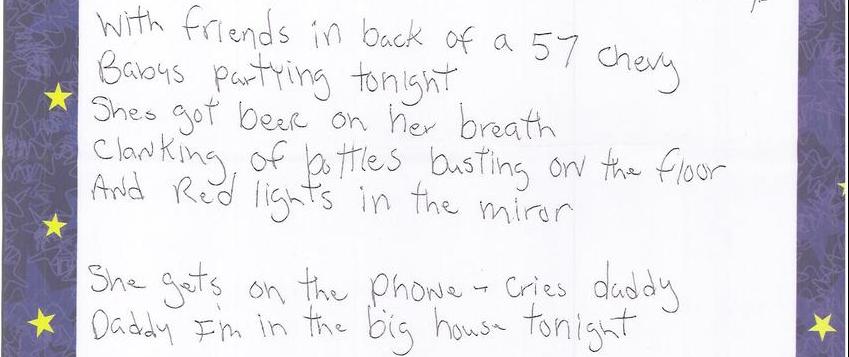 With friends in back of a 57 chevy
Babys partying tonight
Shes got beer on her breath
Clanking of bottles busting on the floor
And Red lights in the miror
She gets on the phone - cries daddy
Daddy I'm in the big house tonight